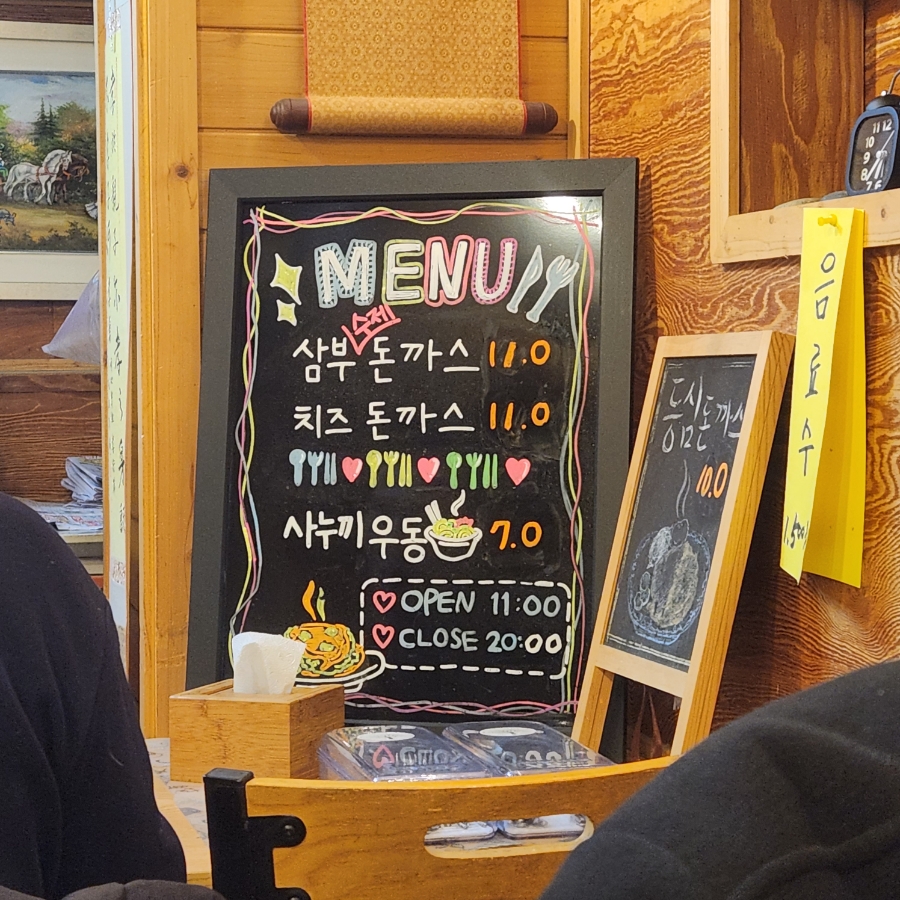 MENU
수제
삼부 돈까스 11.0
치즈 돈까스 11.0
사누끼우동 7.0
OPEN 11:00
CLOSE 20:00
등심돈까스
10.0
음료수
1,500
11 12
10
9
8
7 6